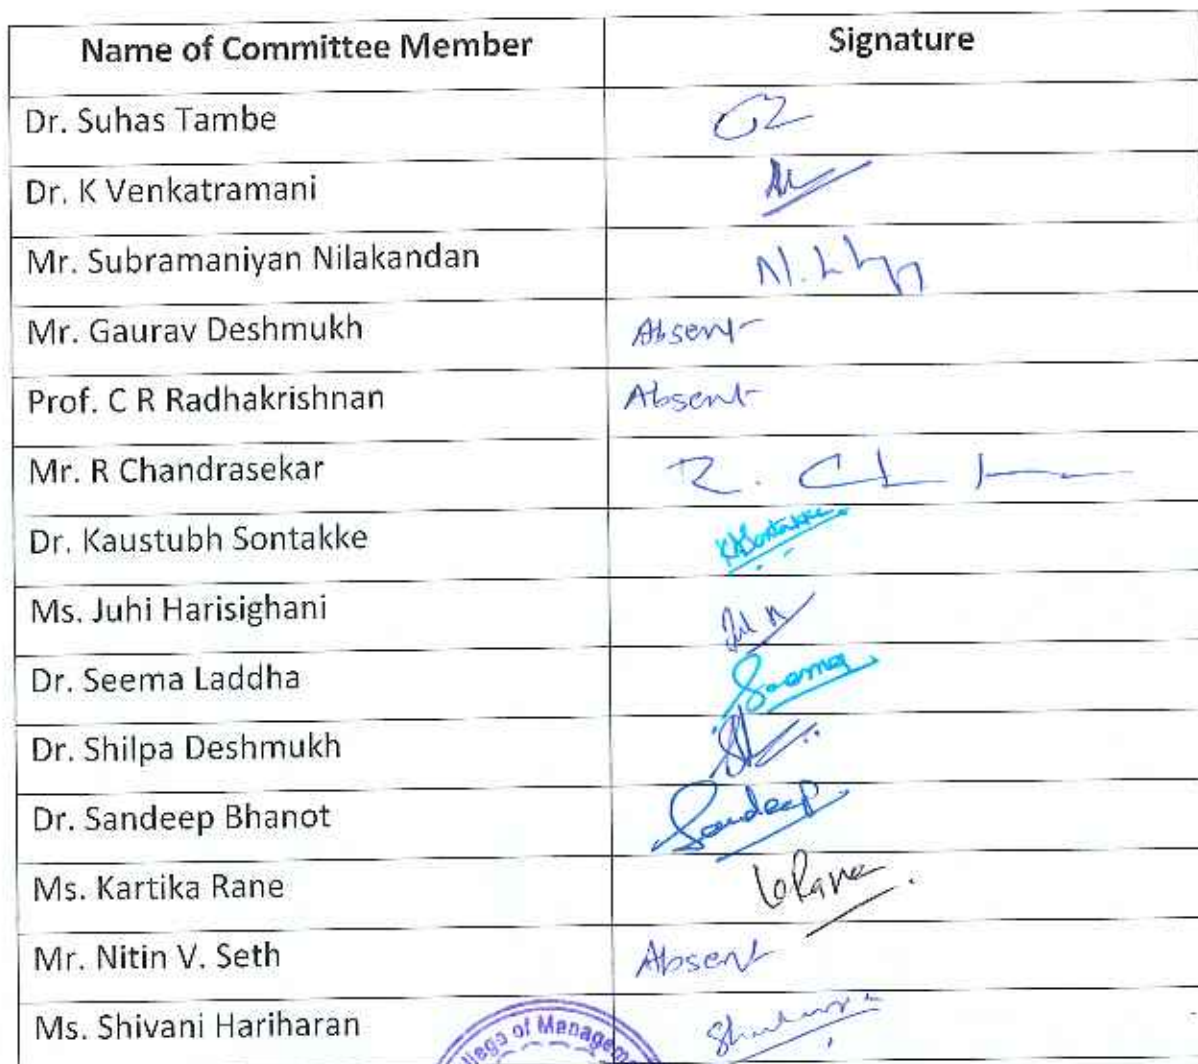 Name of Committee Member Signature
Dr. Suhas Tambe
Dr. K Venkatramani
Mr. Subramaniyan Nilakandan
Mr. Gaurav Deshmukh Absent
Prof. C R Radhakrishnan Absent
Mr. R Chandrasekar R.
Dr. Kaustubh Sontakke KASontakke
Ms. Juhi Harisighani
Dr. Seema Laddha Seema
Dr. Shilpa Deshmukh
Dr. Sandeep Bhanot Sandeep
Ms. Kartika Rane Rane
Mr. Nitin V. Seth Absent
Ms. Shivani Hariharan
of Manage